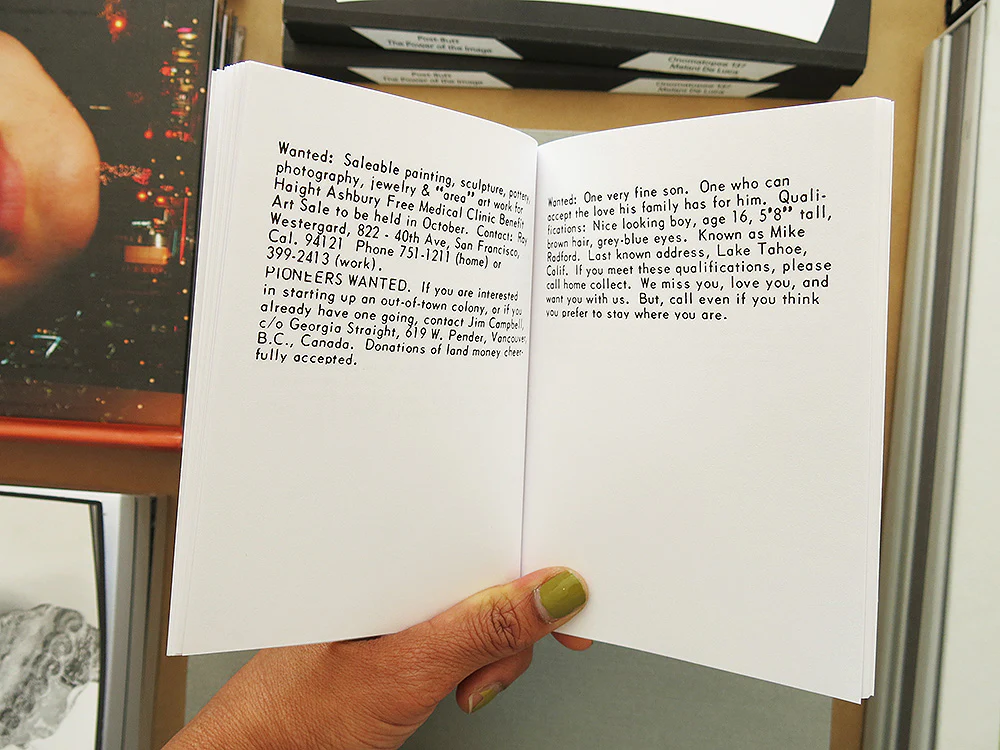 Post-Butt
The Power of the Image
Onomatopee 137
Melani De Luca
Post-Butt
The Power of the Image
Onomatopee 137
Melani De Luca
Wanted: Saleable painting, sculpture, pottery,
photography, jewelry & "area" art work for
Haight Ashbury Free Medical Clinic Benefit
Art Sale to be held in October. Contact: Ray
Westergard, 822 - 40th Ave, San Francisco,
Cal. 94121 Phone 751-1211 (home) or
399-2413 (work).
PIONEERS WANTED. If you are interested
in starting up an out-of-town colony, or if you
already have one going, contact Jim Campbell,
c/o Georgia Straight, 619 W. Pender, Vancouver,
B.C., Canada. Donations of land money cheer-
fully accepted.
Wanted: One very fine son. One who can
accept the love his family has for him. Quali-
fications: Nice looking boy, age 16, 5"8" tall,
brown hair, grey-blue eyes. Known as Mike
Radford. Last known address, Lake Tahoe,
Calif. If you meet these qualifications, please
call home collect. We miss you, love you, and
want you with us. But, call even if you think
you prefer to stay where you are.